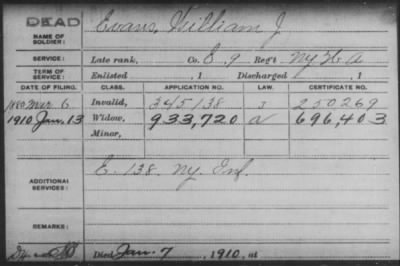 DEAD
Evans, William J.
NAME OF SOLDIER:
SERVICE: Late rank, Co. 8, 9 Reg't NY H A
TERM OF SERVICE: Enlisted , 1 Discharged , 1
DATE OF FILING. CLASS. APPLICATION NO. LAW. CERTIFICATE NO.
1880 Mar. 6 Invalid, 345138 250269
1910 Jan. 13 Widow, 933,720 a 696,403
Minor,
E. 138. NY. Inf.
ADDITIONAL SERVICES:
REMARKS:
Died Jan. 7, 1910, at